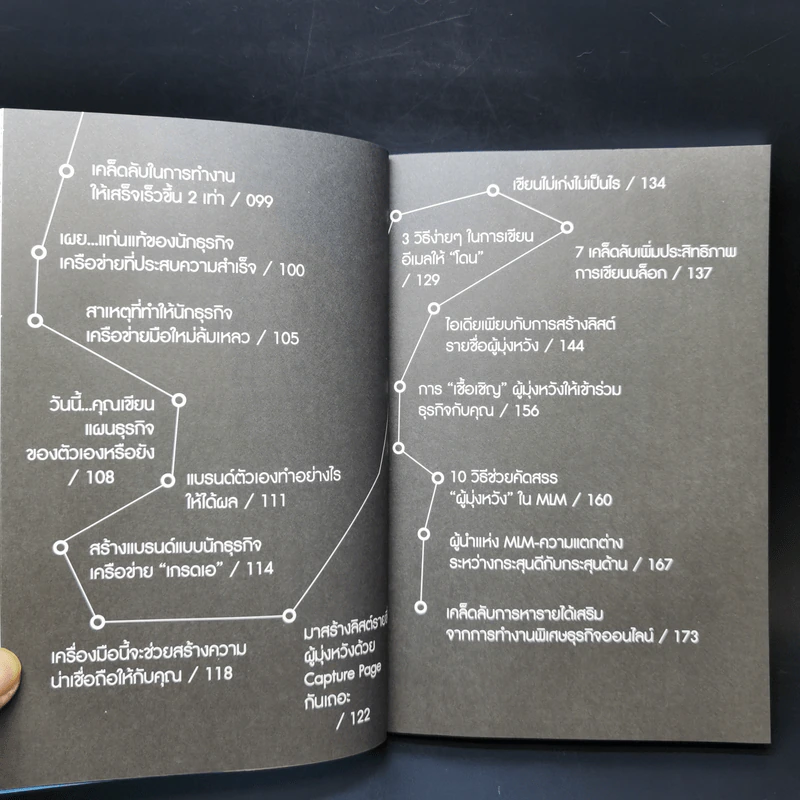 เคล็ดลับในการทำงาน
ให้เสร็จเร็วขึ้น 2 เท่า / 099
เผย...แก่นแท้ของนักธุรกิจ
เครือข่ายที่ประสบความสำเร็จ / 100
สาเหตุที่ทำให้นักธุรกิจ
เครือข่ายมือใหม่ล้มเหลว / 105
วันนี้...คุณเขียน
แผนธุรกิจ
ของตัวเองหรือยัง
/ 108
แบรนด์ตัวเองทำอย่างไร
ให้ได้ผล / 111
สร้างแบรนด์แบบนักธุรกิจ
เครือข่าย “เกรดเอ” / 114
เครื่องมือนี้จะช่วยสร้างความ
น่าเชื่อถือให้กับคุณ / 118
มาสร้างลิสต์ราย
ผู้มุ่งหวังด้วย
Capture Page
กันเถอะ
/ 122
3 วิธีง่ายๆ ในการเขียน
อีเมลให้ “โดน”
/ 129
เขียนไม่เก่งไม่เป็นไร / 134
7 เคล็ดลับเพิ่มประสิทธิภาพ
การเขียนบล็อก / 137
ไอเดียเพียบกับการสร้างลิสต์
รายชื่อผู้มุ่งหวัง / 144
การ “เชื้อเชิญ” ผู้มุ่งหวังให้เข้าร่วม
ธุรกิจกับคุณ / 156
10 วิธีช่วยคัดสรร
“ผู้มุ่งหวัง” ใน MLM / 160
ผู้นำแห่ง MLM-ความแตกต่าง
ระหว่างกระสุนดีกับกระสุนด้าน / 167
เคล็ดลับการหารายได้เสริม
จากการทำงานพิเศษธุรกิจออนไลน์ / 173